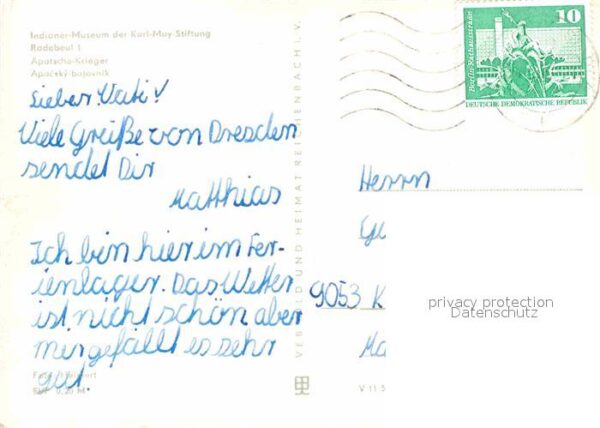 Indianer-Museum der Karl-May-Stiftung
Radebeul 1
Apatsche-Krieger
Apačský bojovník
Lieber Vati!
Viele Grüße von Dresden
sendet Dir
Matthias
Ich bin hier im Fer-
ienlager. Das Wetter
ist nicht schön aber
mir gefällt es sehr
gut.
EVP 0,20 M
VEB BILD UND HEIMAT REICHENBACH I. V.
10
Berlin-Rathausstraße
DEUTSCHE DEMOKRATISCHE REPUBLIK
Herrn
9053 K
Ma
V 11 5
privacy protection
Datenschutz